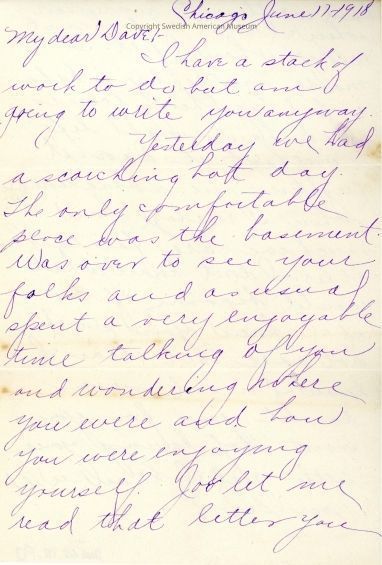 Chicago June 17-1918
Copyright Swedish American Museum
My dear Dave!-
I have a stack of
work to do but am
going to write you anyway.
Yesterday we had
a scorching hott day.
The only comfortable
place was the basement.
Was over to see your
folks and as usual
spent a very enjoyable
time talking of you
and wondering where
you were and how
you were enjoying
yourself. Joe let me
read that letter you